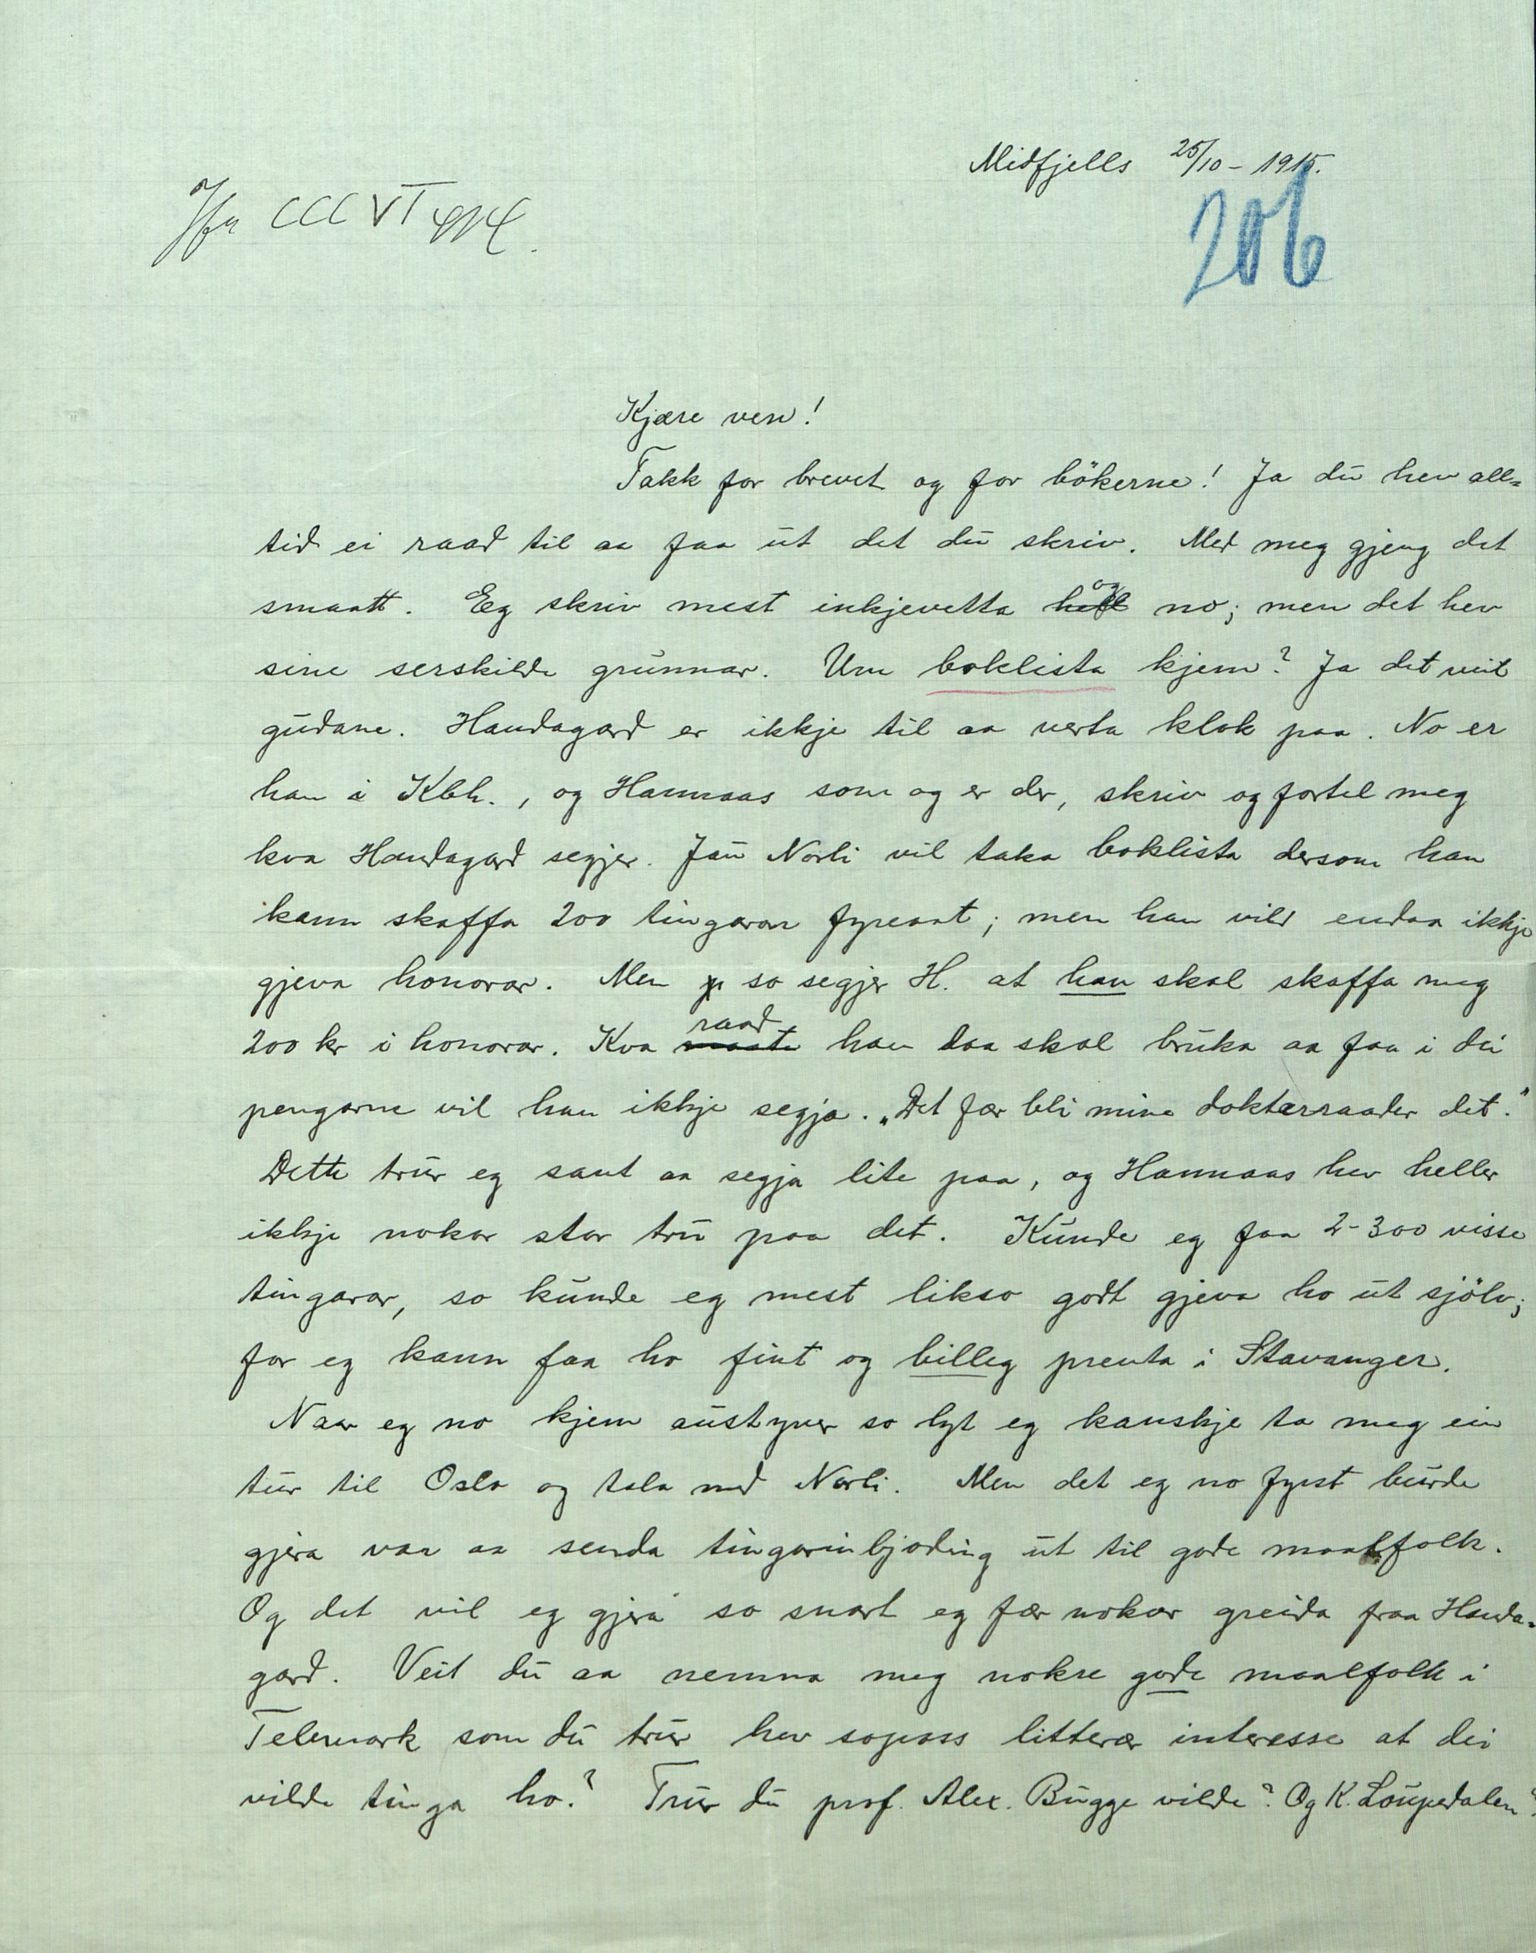 Midfjells 25/10 - 1915.
206
Kjære ven!
Takk for brevet og for bökerne! Ja du hev all=
tid ei raad til aa faa ut det du skriv. Med meg gjeng det
smaatt. Eg skriv mest inkjevetta og no; men det hev
sine serskilde grunnar. Um boklista kjem? Ja det veit
gudane. Handagard er ikkje til aa verta klok paa. No er
han i Kbh., og Hannaas som og er der, skriv og fortel meg
kva Handagard segjer. Jau Norli vil taka boklista dersom han
kann skaffa 200 tingarar fyreaat; men han vild endaa ikkje
gjeva honorar. Men so segjer H. at han skal skaffa meg
200 kr i honorar. Kva raad han daa skal bruka aa faa i dei
pengarne vil han ikkje segja. „Det fær bli mine doktarraader det."
Dette trur eg sant aa segja lite paa, og Hannaas hev heller
ikkje nokor stor tru paa det. Kunde eg faa 2-300 visse
tingarar, so kunde eg mest likso godt gjeva ho ut sjölv;
for eg kann faa ho fint og billeg prenta i Stavanger.
Naar eg no kjem austyver so lyt eg kanskje ta meg ein
tur til Oslo og tala med Norli. Men det eg no fyrst burde
gjera var aa senda tingarinbjoding ut til gode maalfolk.
Og det vil eg gjera so snart eg fær nokor greida fraa Handa-
gard. Veit du aa nemna meg nokre gode maalfolk i
Telemark som du trur hev sopass litterær interesse at dei
vilde tinga ho? Trur du prof. Alex. Bugge vilde? Og K. Loupedalen?